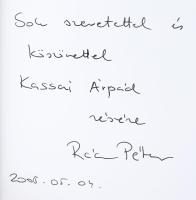 Sok szeretettel és
köszönettel
Kassai Árpád
részére
Rácz Péter
2005. 05. 04.